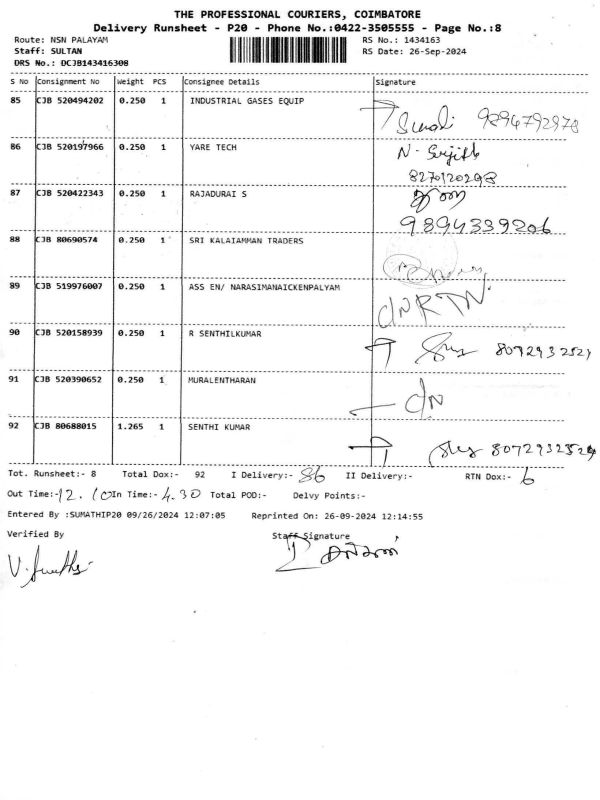 THE PROFESSIONAL COURIERS, COIMBATORE
Delivery Runsheet - P20 - Phone No.:0422-3505555 - Page No.:8
Route: NSN PALAYAM RS No.: 1434163
Staff: SULTAN RS Date: 26-Sep-2024
DRS No.: DCJB143416308
S No Consignment No Weight PCS Consignee Details Signature
85 CJB 520494202 0.250 1 INDUSTRIAL GASES EQUIP
9894792978
86 CJB 520197966 0.250 1 YARE TECH
8270120298
87 CJB 520422343 0.250 1 RAJADURAI S
9894339206
88 CJB 80690574 0.250 1 SRI KALAIAMMAN TRADERS
89 CJB 519976007 0.250 1 ASS EN/ NARASIMANAICKENPALYAM
D/N RTN
90 CJB 520158939 0.250 1 R SENTHILKUMAR
8072932529
91 CJB 520390652 0.250 1 MURALENTHARAN
D/N
92 CJB 80688015 1.265 1 SENTHI KUMAR
8072932529
Tot. Runsheet:- 8 Total Dox:- 92 I Delivery:- 86 II Delivery:- RTN Dox:- 6
Out Time:- 12.10 In Time:- 4.30 Total POD:- Delvy Points:-
Entered By :SUMATHIP20 09/26/2024 12:07:05 Reprinted On: 26-09-2024 12:14:55
Verified By Staff Signature